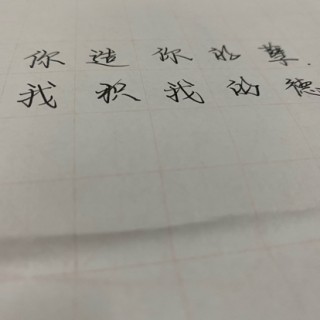 你造你的孽.
我积我的德